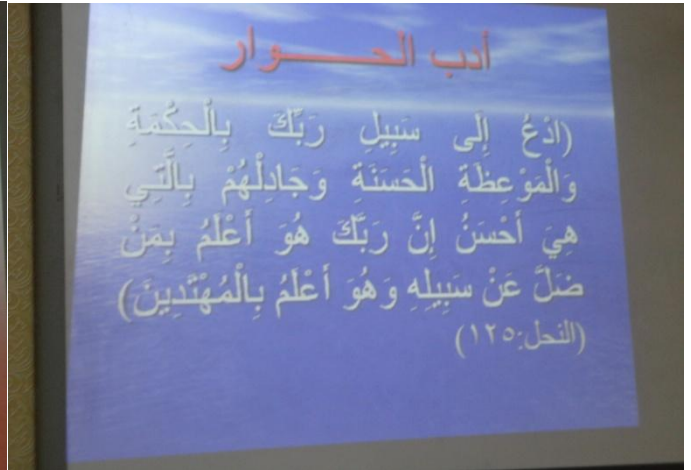 أدب الحـــــوار
(ادْعُ إِلَى سَبِيلِ رَبِّكَ بِالْحِكْمَةِ
وَالْمَوْعِظَةِ الْحَسَنَةِ وَجَادِلْهُمْ بِالَّتِي
هِيَ أَحْسَنُ إِنَّ رَبَّكَ هُوَ أَعْلَمُ بِمَنْ
ضَلَّ عَنْ سَبِيلِهِ وَهُوَ أَعْلَمُ بِالْمُهْتَدِينَ)
(النحل:١٢٥)